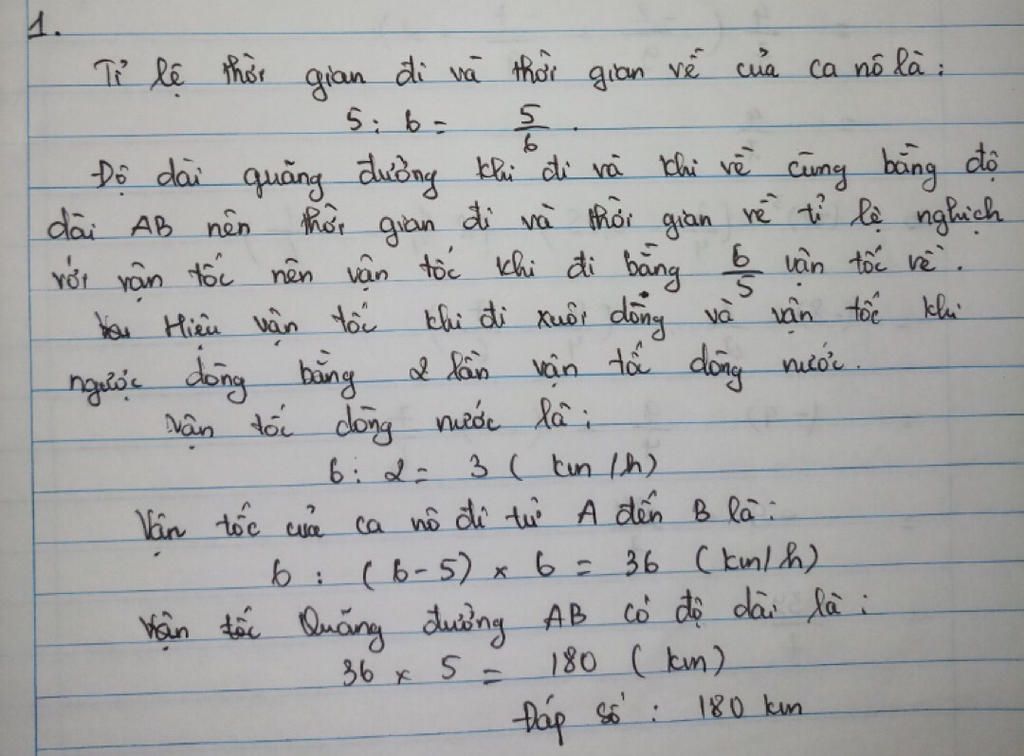 1.
Tỉ lệ thời gian đi và thời gian về của ca nô là:
5 : 6 = 5/6 .
Độ dài quãng đường khi đi và khi về cùng bằng độ
dài AB nên thời gian đi và thời gian về tỉ lệ nghịch
với vận tốc nên vận tốc khi đi bằng 6/5 vận tốc về.
Hiệu vận tốc khi đi xuôi dòng và vận tốc khi
ngược dòng bằng 2 lần vận tốc dòng nước.
Vận tốc dòng nước là:
6 : 2 = 3 ( km/h)
Vận tốc của ca nô đi từ A đến B là:
6 : ( 6 - 5) × 6 = 36 ( km/h)
Vận tốc Quãng đường AB có độ dài là:
36 × 5 = 180 ( km)
Đáp số : 180 km